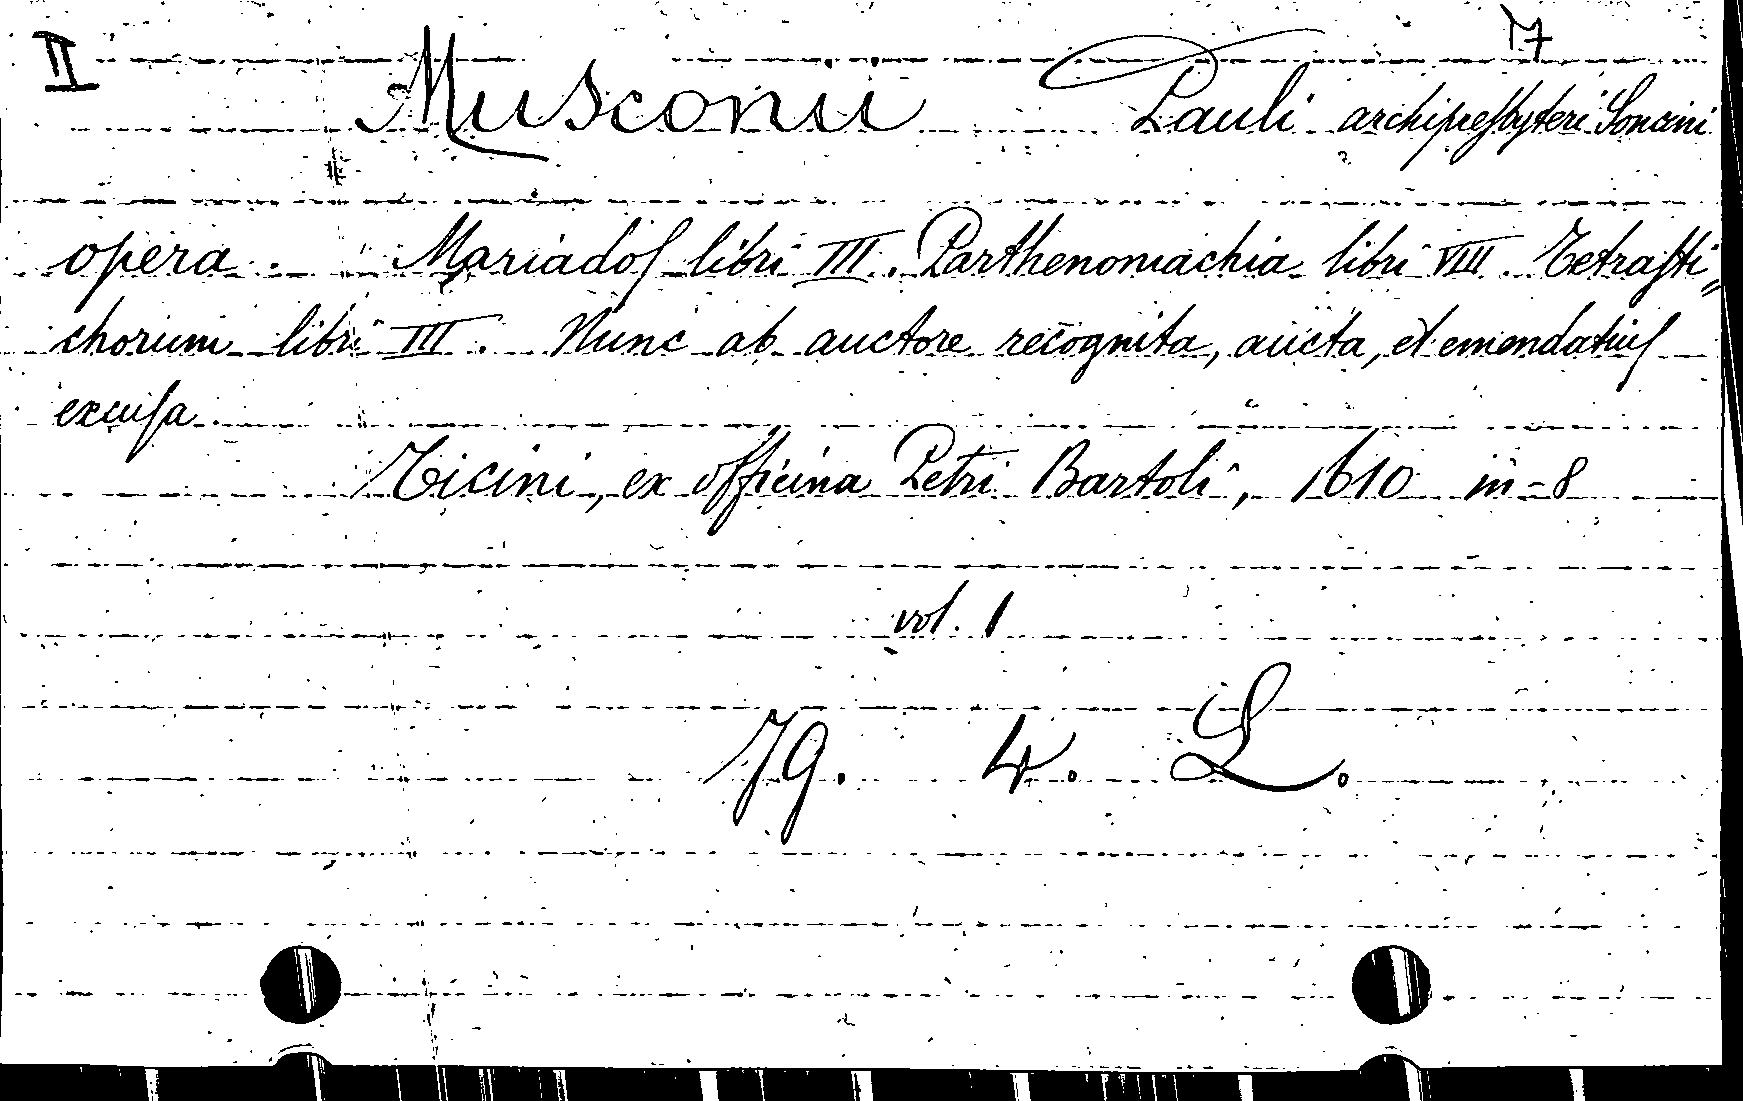 II 17
Musconii Pauli archipreſbyteri Soncini
opera. Mariadoſ libri III. Parthenomachia libri VIII. Tetraſti=
chorum libri III. Nunc ab auctore recognita, aucta, et emendatiuſ
excuſa.
Ticini, ex officina Petri Bartoli, 1610 in-8
vol. 1
79. 4. L.